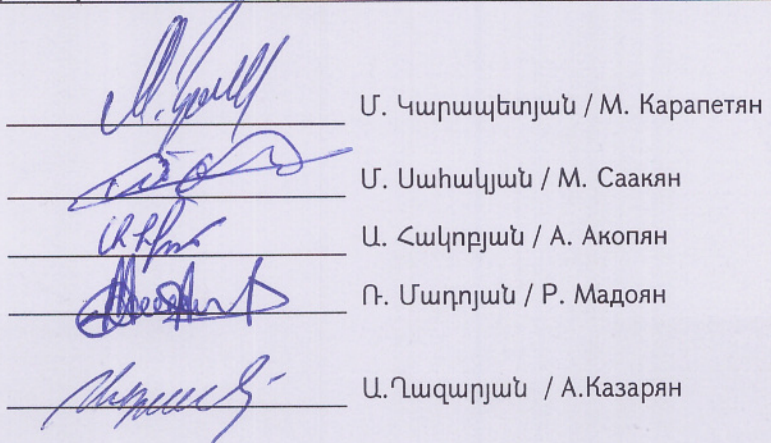 Մ. Կարապետյան / М. Карапетян
Մ. Սահակյան / М. Саакян
Ա. Հակոբյան / А. Акопян
Ռ. Մադոյան / Р. Мадоян
Ա.Ղազարյան / А.Казарян